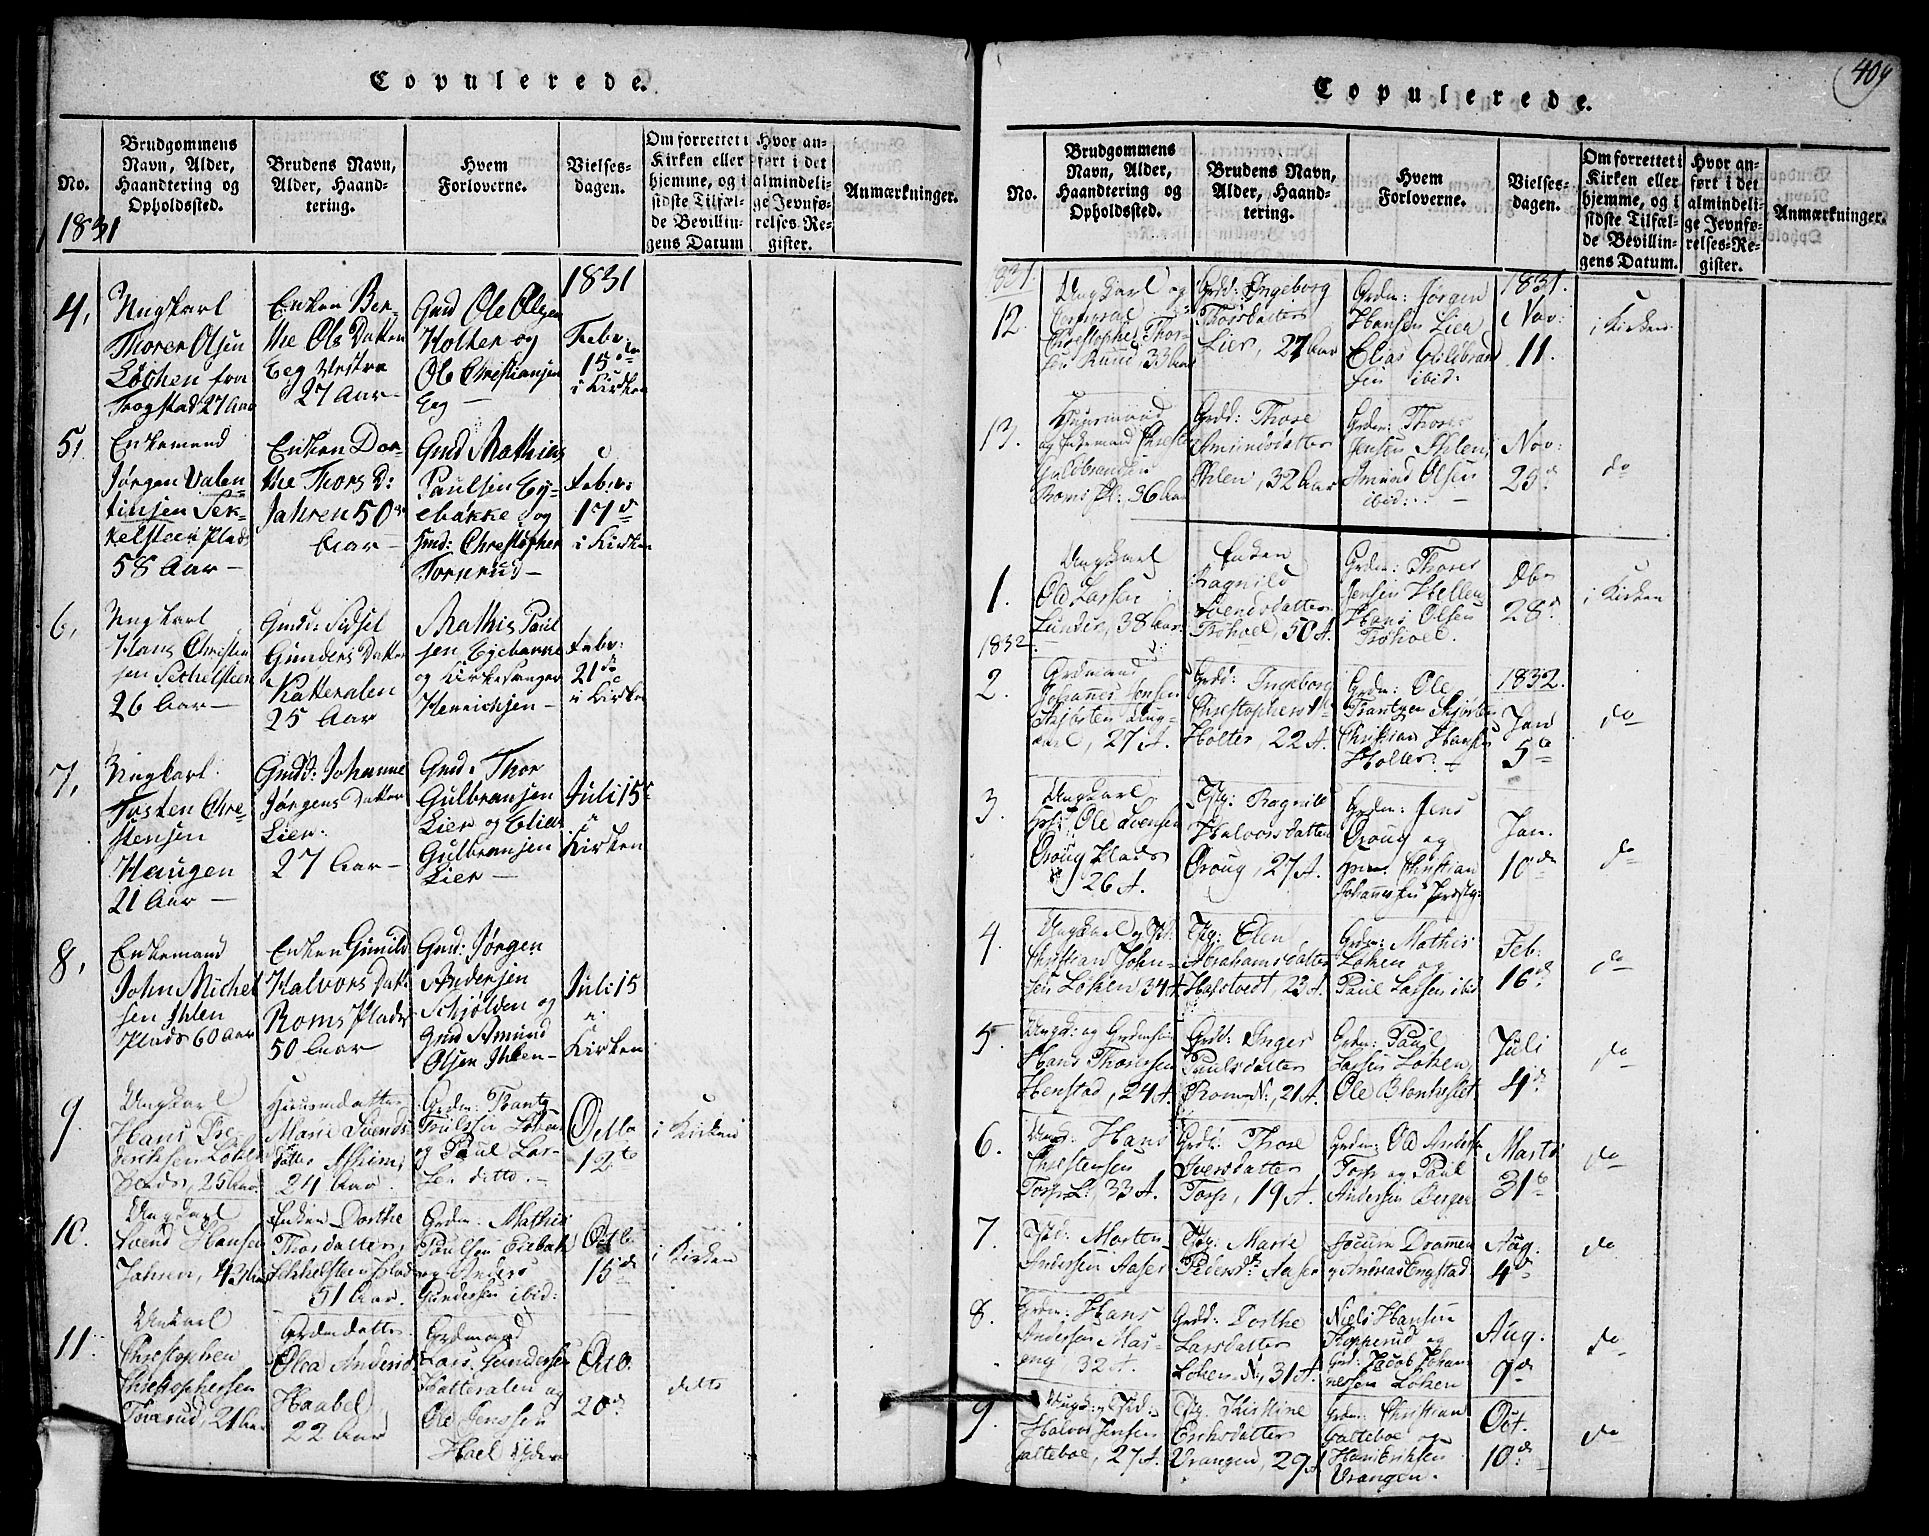 Copulerede.
No.
Brudgommens
Navn, Alder,
Haandtering og
Opholdssted.
Brudens Navn,
Alder, Haand-
tering.
Hvem
Forloverne.
Vielses-
dagen.
Om forrettet i
Kirken eller
hjemme, og i
sidste Tilfæl-
de Bevillin-
gens Datum
Hvor an-
ført i det
almindeli-
ge Jevnfø-
relses-Re-
gister.
Anmærkninger.
1831
1831
4,
Ungkarl
Thoren Olsen
Löchen fra
Trøgstad 27 Aar
Enken Ber-
the Ols Datter
Eeg Vestre
27 Aar
Gmd Ole Olsen
Holter og
Ole Christiansen
Eeg
Febr.
15de
i Kirken
5,
Enkemand
Jörgen Valen-
tinsen Sek-
kelsteen Plads
58 Aar
Enken Dor-
the Thors D:
Jahren 50
Aar
Gmd Mathias
Paulsen Ey-
ebakke og
Gmd: Christopher
Tornrud
Febr:
17de
i Kirken
6,
Ungkarl
Hans Christen
sen Sechelsteen
26 Aar
Gmdd: Sidsel
Gunders Datter
Katteralen
25 Aar
Mathis Paul
sen Eyebakke
og Kirkesanger
Henrichsen
Febr:
21de
i Kirken
7,
Ungkarl
Tosten Chri-
stensen
Haugen
21 Aar
Gmdd: Johanne
Jørgens Datter
Lier.
27 Aar
Gmd. Thor
Gulbransen
Lier og Elias
Gulbransen
Lier
Juli 15
i
Kirken
8,
Enkemand
John Michel
sen Ihlen
Plads 60 Aar
Enken Gunild
Halvors Datt:
Roms Plads
50 Aar
Gmd: Jörgen
Andersen
Schjolden og
Gmd Amund
Olsen Ihlen
Juli 15
i
Kirken
9.
Ungkarl
Hans Fre-
deriksen Løken
Plads, 25 Aar.
Huusmdatter
Marie Svends
datter Askim,
24 Aar.
Grdm: Frantz
Trulssen Løken
og Paul Lar-
sen ditto.
Octb.
12te
i Kirken
10.
Ungkarl
Svend Hansen
Jahren, 43 Aar
Enken Dorthe
Thorsdatter,
Sekkelsteen Plad
51 Aar.
Grdm: Mathis
Paulsen Eiebak
og Anders
Gundersen ibid:
Octb.
15de
i Kirken
11.
Ungkarl
Christophen
Christophersen
Toserud, 21 Aar
Grdmdatter
Olea Andersd
Haabel,
22 Aar
Grdmand
Lars Gundersen
Katteralen og
Ole Jenssen
Hoel Ydere
Octb.
20de
ditto
409
Copulerede.
No.
Brudgommens
Navn, Alder,
Haandtering og
Opholdssted.
Brudens Navn,
Alder, Haand-
tering.
Hvem
Forloverne.
Vielses-
dagen.
Om forrettet i
Kirken eller
hjemme, og i
sidste Tilfæl-
de Bevillin-
gens Datum.
Hvor an-
ført i det
almindeli-
ge Jevnfø-
relses-Re-
gister.
Anmærkninger.
1831.
1831.
12.
Ungkarl og
Corporal
Christopher Thor-
sen Ruud 33 Aar
Grdd: Ingeborg
Thorsdatter
Lier, 27 Aar
Grdm: Jørgen
Hansen Lier
Elias Guldbrand
sen ibid:
Nov:
11.
i Kirken
13.
Huusmand
og Enkemand Christen
Guldbrandsen
Roms Pl: 36 Aar
Grdd: Thore
Amundsdatter
Ihlen, 32 Aar
Grdm: Thore
Jensen Ihlen,
Amund Olsen
ibid:
Nov:
25de
do
1.
Ungkarl
Ole Larsen
Lunder, 38 Aar.
Enken
Ragnild
Svendsdatter
Trøhoel, 50 A.
Grdm: Thores
Jensen Hellen
Hans Olsen
Trøhoel.
Dbr
28de
i Kirken
1832
2.
Grdmand
Johannes Jensen
Skjørten Ung-
karl, 27 A.
Grdd: Ingeborg
Christophersd
Holter, 22 A.
Grdm: Ole
Frantzen Skjørten
Christian Hansen
Holter.
1832.
Jan
5te
do
3.
Ungkarl
Ole Svensen
Oroug Plads
26 A.
Pig: Ragnild
Halvorsdatter
Oroug, 27 A.
Grdm: Jens
Oroug og
Christian
Johannesen
Jan.
10de
do
4.
Ungkarl og
Christian John-
sen Løken 34 A
Pig: Elen
Abrahamsdatter
Hafstvedt, 23 A.
Grdm: Mathis
Løken og
Paul Larsen ibid
Feb:
16de
do
5.
Ungk: og Grdmsøn
Hans Thoresen
Henstad, 24 A.
Grdd: Inger
Paulsdatter
Rom N:, 21 A.
Grdm: Paul
Larsen Løken,
Ole
Juli
4de
do
6.
Ungk: Hans
Christensen
Torp L:, 33 A.
Grdd: Thore
Iversdatter
Torp, 19 A.
Grdm: Ole Anders
Torp og Paul
Andersen Berger
Marts
31te
do
7.
Morten
Andersen Aaser
Pig: Marie
Pedersd. Aaser
Dramen
Andreas Engstad
Aug.
4de
do
8.
Grdm: Hans
Andersen Mas-
eng, 32 A.
Grdd: Dorthe
Larsdatter
Løken N., 31 A.
Niels Hansen
Kopperud og
Grd: Jacob Johan
nessen Løken
Aug.
9de
do
9.
Halvor Jensen
Galteboe, 27 A.
Pig. Kirstine
Eriksdatter
Vrangen, 29 A
Grdm: Christian
Galteboe og
Hans Eriksen
Vrangen.
Oct.
10de
do